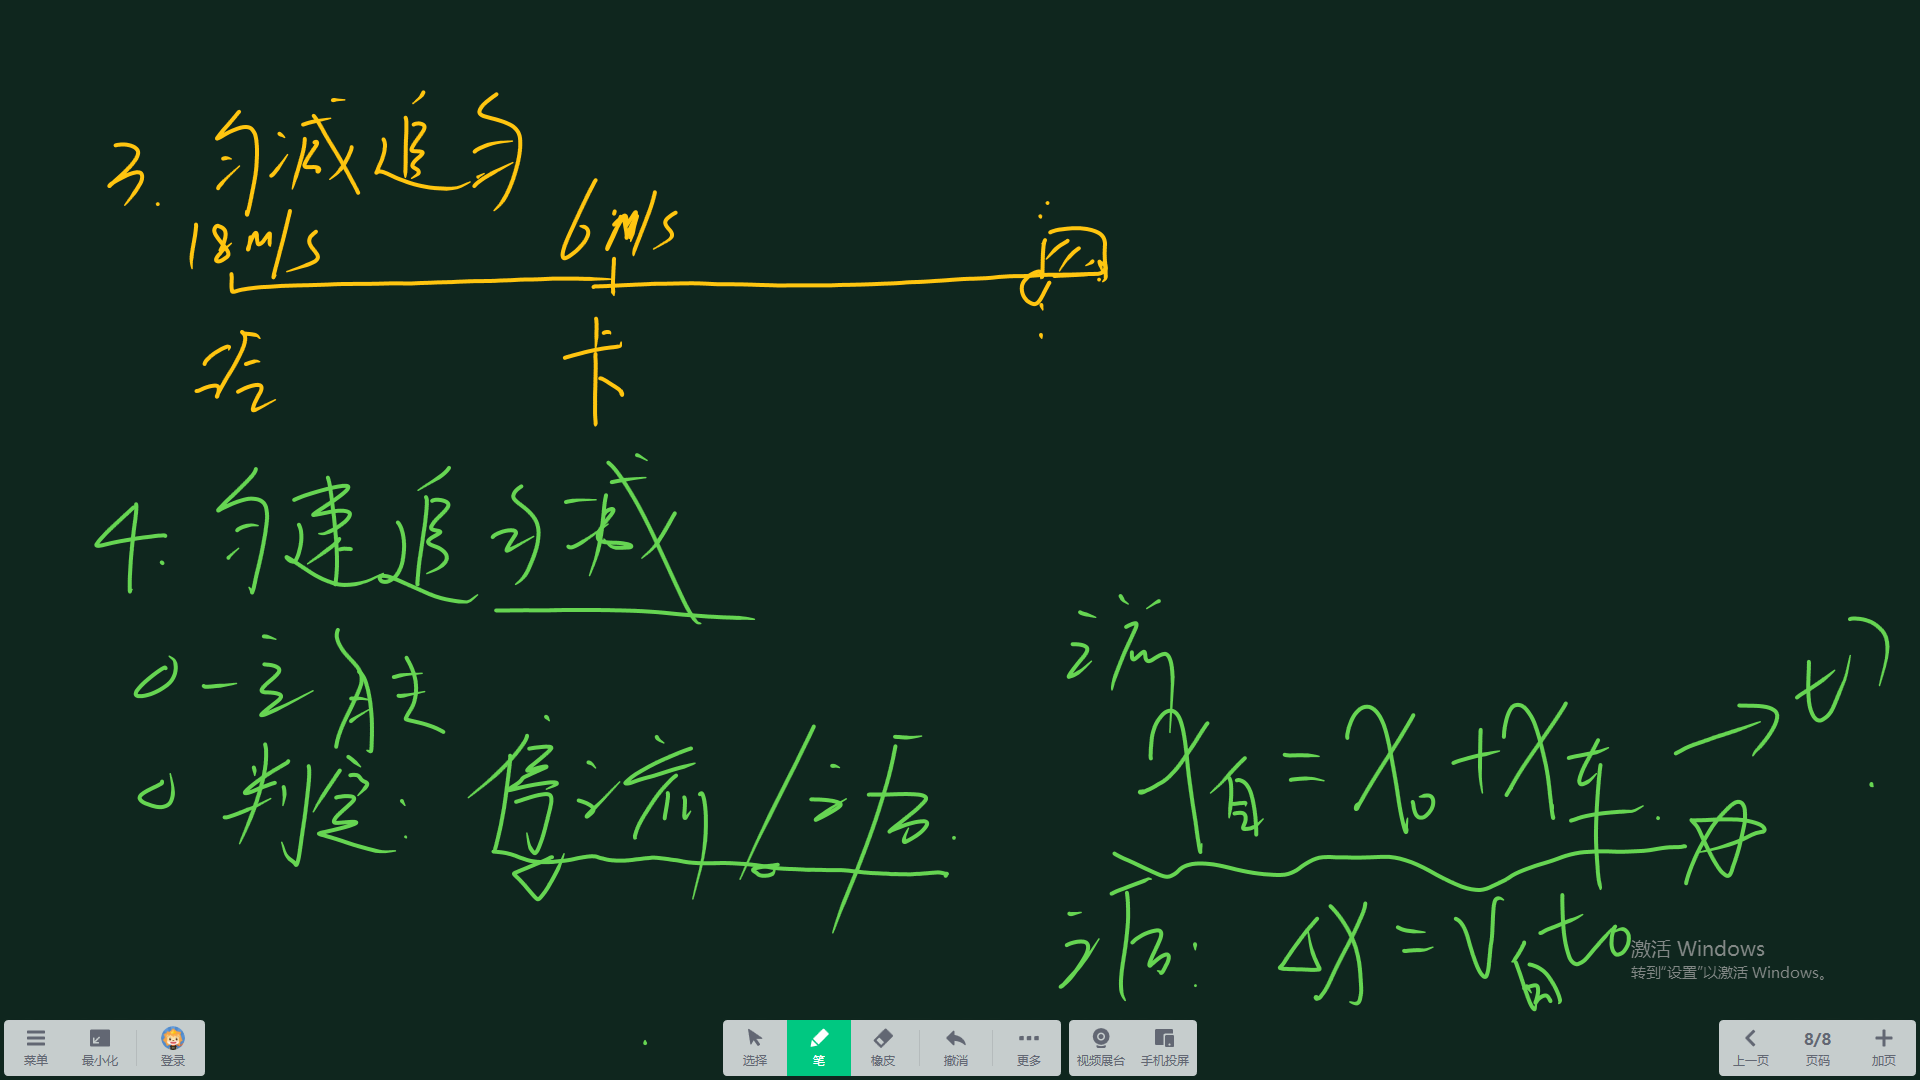 3. 匀减追匀
18m/s 6m/s
卡
4. 匀速追匀减
① 一定能追
② 判定: 停前/后.
前
x自 = x0 + x车 → t?
后: Δx = v自t0
激活 Windows
转到“设置”以激活 Windows。
菜单 最小化 登录 选择 笔 橡皮 撤消 更多 视频展台 手机投屏 上一页 8/8 页码 加页